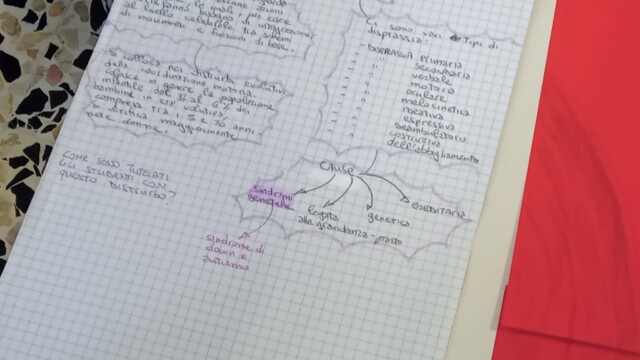 bisogno di integrazione
al livello cerebrale tra schemi
di movimento e funzioni di base.
Si colloca nei disturbi evolutivi
della coordinazione motoria.
la popolazione
infantile del
bambini in età evolutiva,
compresa tra i 5 e 10 anni
si verifica maggiormente
nelle donne.
COME SONO TUTELATI
GLI STUDENTI CON
QUESTO DISTURBO?
Ci sono vari Tipi di
disprassia:
- DISPRASSIA Primaria
- " secondaria
- " verbale
- " motoria
- " oculare
- " melocinetica
- " ideativa
- " espressiva
- " deambulatoria
- " costruttiva
- " dell'abbigliamento
Cause
sindromi
legata
alla gravidanza-parto
genetica
EREDITARIA
sindrome di
down e
autismo